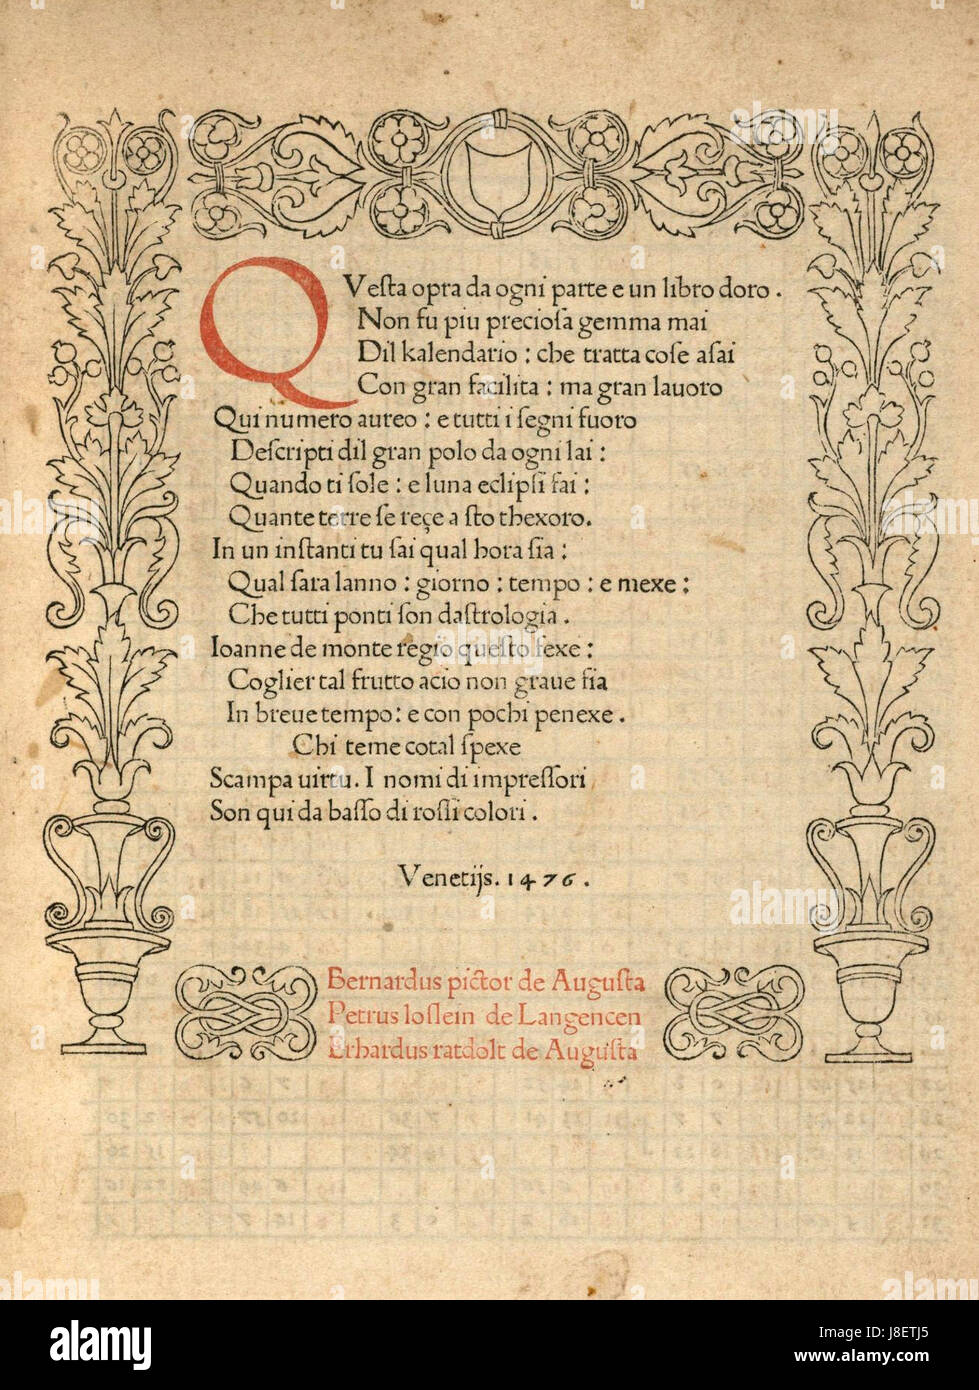 QVeſta opra da ogni parte e un libro doro.
Non fu piu precioſa gemma mai
Dil kalendario: che tratta coſe aſai
Con gran facilita: ma gran lauoro
Qui numero aureo: e tutti i ſegni fuoro
Deſcripti dil gran polo da ogni lai:
Quando ti ſole: e luna eclipſi fai:
Quante terre ſe reçe a ſto thexoro.
In un inſtanti tu ſai qual hora ſia:
Qual ſara lanno: giorno: tempo: e mexe:
Che tutti ponti ſon daſtrologia.
Ioanne de monte regio queſto fexe:
Coglier tal frutto acio non graue ſia
In breue tempo: e con pochi penexe.
Chi teme cotal ſpexe
Scampa uirtu. I nomi di impreſſori
Son qui da baſſo di roſſi colori.
Venetijs. 1476.
Bernardus pictor de Auguſta
Petrus loſlein de Langencen
Erhardus ratdolt de Auguſta
alamy
Image ID: J8ETJ5
www.alamy.com